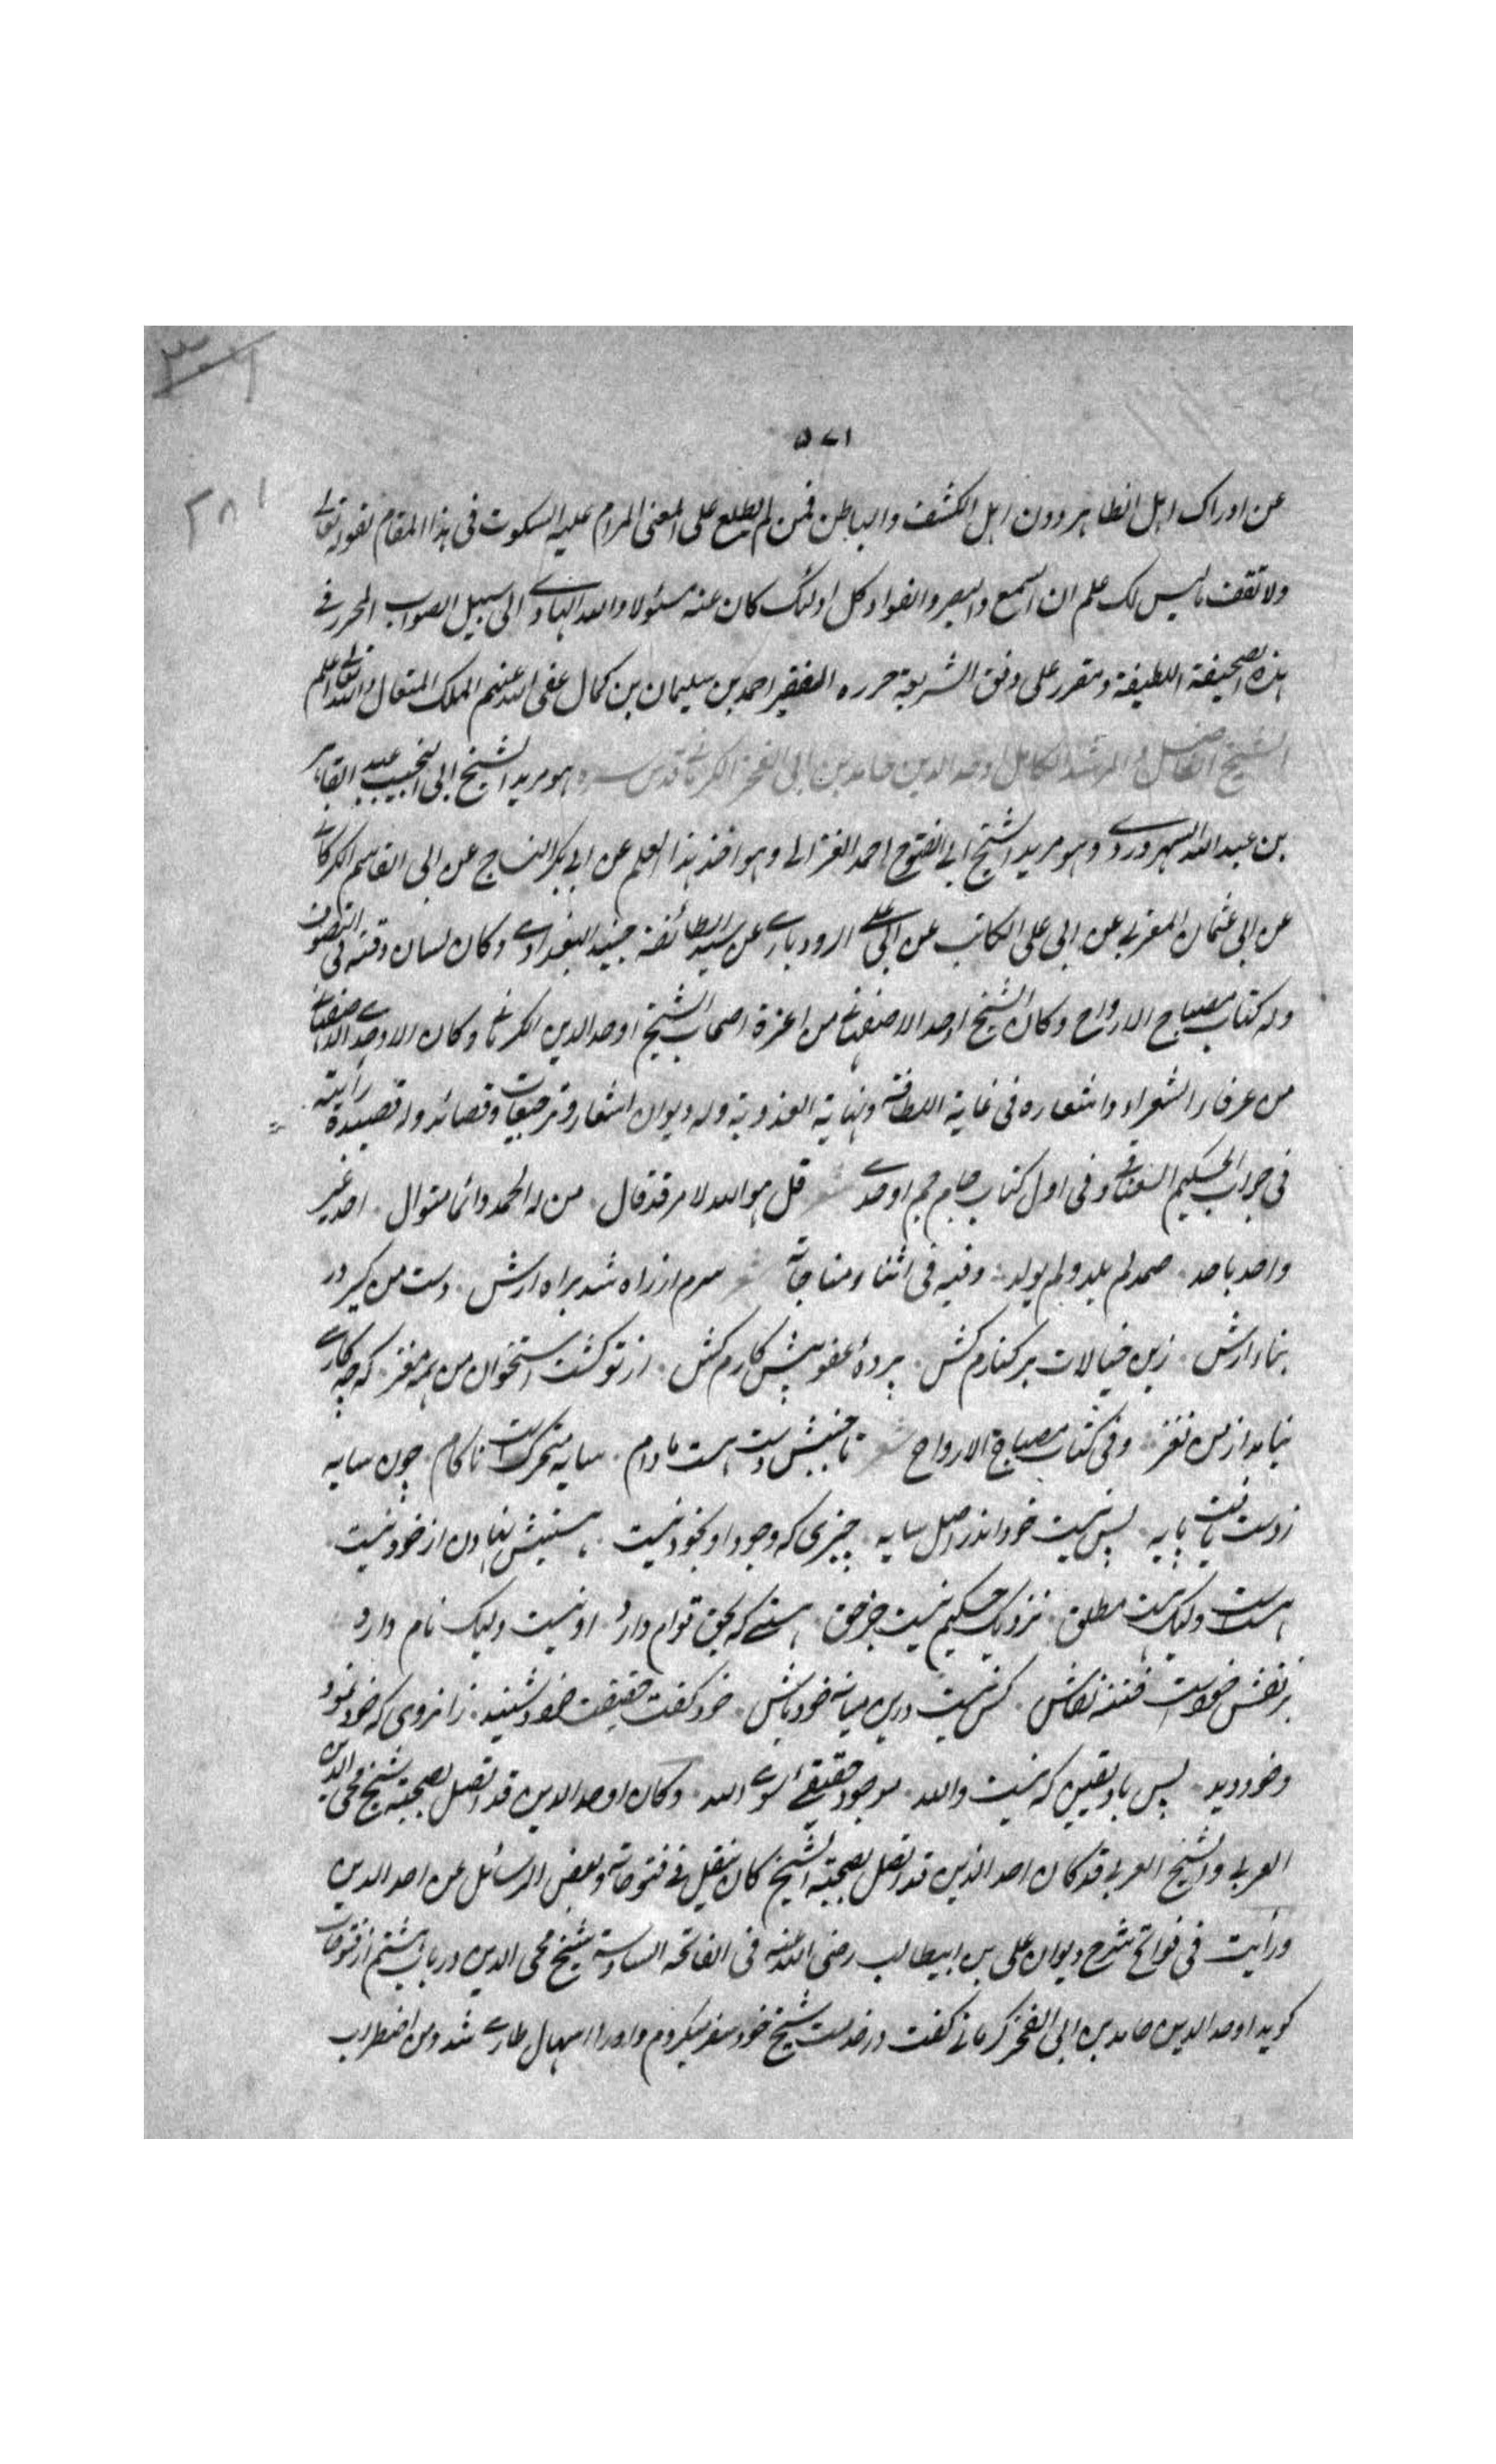 ٥٧١
٢٨١
عن ادراک اہل الظاہر دون اہل الکشف والباطن فمن لم یطلع علی المعنی المرام علیہ السکوت فی ہذا المقام لقولہ تعالی
ولا تقف ما لیس لک علم ان السمع والبصر والفواد کل اولئک کان عنہ مسئولا واللہ الہادی الی سبیل الصواب المحرر فی
ہذہ الصحیفة اللطیفة ومقرر علی وفق الشریعة حررہ الفقیر احمد بن سلیمان بن کمال عفی اللہ عنہم الملک المتعال واللہ تعالی اعلم
الشیخ الفاضل والمرشد الکامل اوحد الدین حامد بن ابی الفخر الکرمانی قدس سرہ ہو مرید الشیخ ابی النجیب عبد القاہر
بن عبد اللہ السہروردی وہو مرید الشیخ ابی الفتوح احمد الغزالی وہو اخذ ہذا العلم عن ابی بکر النساج عن ابی القاسم الکرکانی
عن ابی عثمان المغربی عن ابی علی الکاتب عن ابی علی الرودباری عن سید الطائفة جنید البغدادی وکان لسان وقتہ فی التصوف
ولہ کتاب مصباح الارواح وکان الشیخ اوحد الاصفہانی من اعزة اصحاب الشیخ اوحد الدین الکرمانی وکان الاوحدی الاصفہانی
من عرفاء الشعراء واشعارہ فی غایة اللطافة ونہایة العذوبة ولہ دیوان اشعار وترجیعات وقصائد ولہ قصیدة رایتہ
فی جواب الحکیم السنائی وفی اول کتاب جام جم اوحدی شعر قل ہو اللہ لامر قد قال من لہ الحمد دائما متوال احد غیر
واحد باحد صمد لم یلد ولم یولد وفیہ فی اثناء مناجاتہ شعر سرم از راہ شد براہ ارش دست من گیر در
پناہ ارش زین خیالات بر کنارم کش پردۀ عفو پیش کارم کش از تو گشت استخوان من ہمہ مغز کہ چہ کاری
نیامد از من نغز وفی کتاب مصباح الارواح شعر تا جنبش دست ہست مادام سایہ متحرکست ناکام چون سایہ
ز دست یافت پایہ پس نیست خود اندر اصل سایہ چیزی کہ وجود او بخود نیست ہستیش نہادن از خرد نیست
ہست ست ولیک ہست مطلق نزدیک حکیم نیست جز حق ہستی کہ بحق قوام دارد او نیست ولیک نام دارد
بر نقش خود است فتنہ نقاش کس نیست درین میانہ خود باش خود گفت حقیقت خود شنید زانروی کہ خود نمود
وخود دید پس باد یقین کہ نیست واللہ موجود حقیقی سوی اللہ وکان اوحد الدین قد اتصل بصحبة شیخ محی الدین
العربی والشیخ العربی قد کان احد الذین قد اتصل بصحبتہ الشیخ کان ینقل فی فتوحاتہ وبعض الرسائل عن اوحد الدین
ورایت فی فواتح شرح دیوان علی بن ابیطالب رضی اللہ عنہ فی الفاتحة السادسة شیخ محی الدین در باب ہشتم از فتوحات
گوید اوحد الدین حامد بن ابی الفخر کرمانی گفت در خدمت شیخ خود سفر میکردم واورا اسہال طاری شد ومن اضطراب